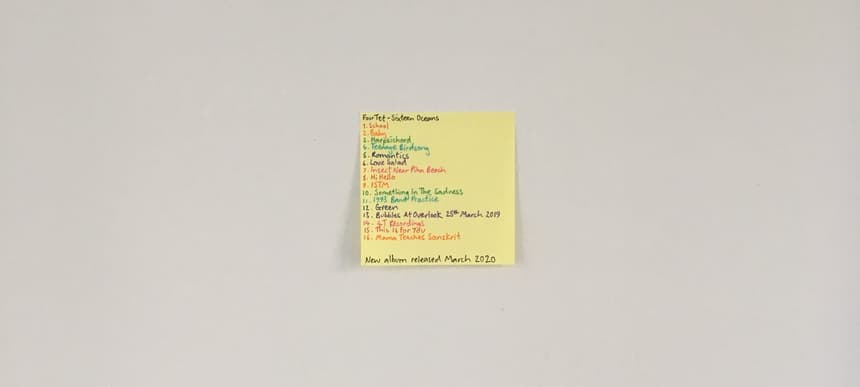 Four Tet - Sixteen Oceans
1. School
2. Baby
3. Harpsichord
4. Teenage Birdsong
5. Romantics
6. Love Salad
7. Insect Near Piha Beach
8. Hi Hello
9. ISTM
10. Something In The Sadness
11. 1993 Band Practice
12. Green
13. Bubbles At Overlook 25th March 2019
14. 4T Recordings
15. This Is For You
16. Mama Teaches Sanskrit
New album released March 2020